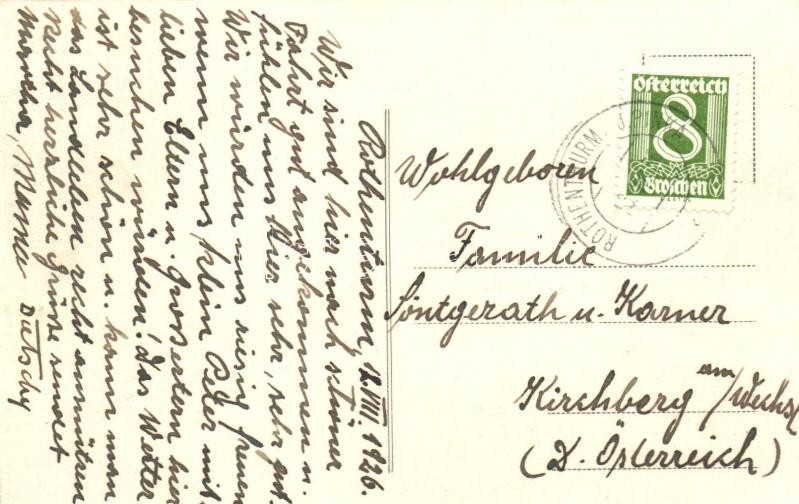 Rothenturm, 12. VIII 1926.
Wir sind hier nach schöner
Fahrt gut angekommen u.
fühlen uns hier sehr, sehr gut.
Wir würden uns riesig freuen
wenn uns klein Peter mit
lieben Eltern u. Großeltern hier
besuchen würden! Das Wetter
ist sehr schön u. kann man
das Landleben recht ausnützen
Recht herzliche Grüße sendet
Österreich
8
Groschen
ROTHENTHURM
Wohlgeboren
Familie
Söntgerath u. Karner
Kirchberg am/Wechsel
(D. Österreich)